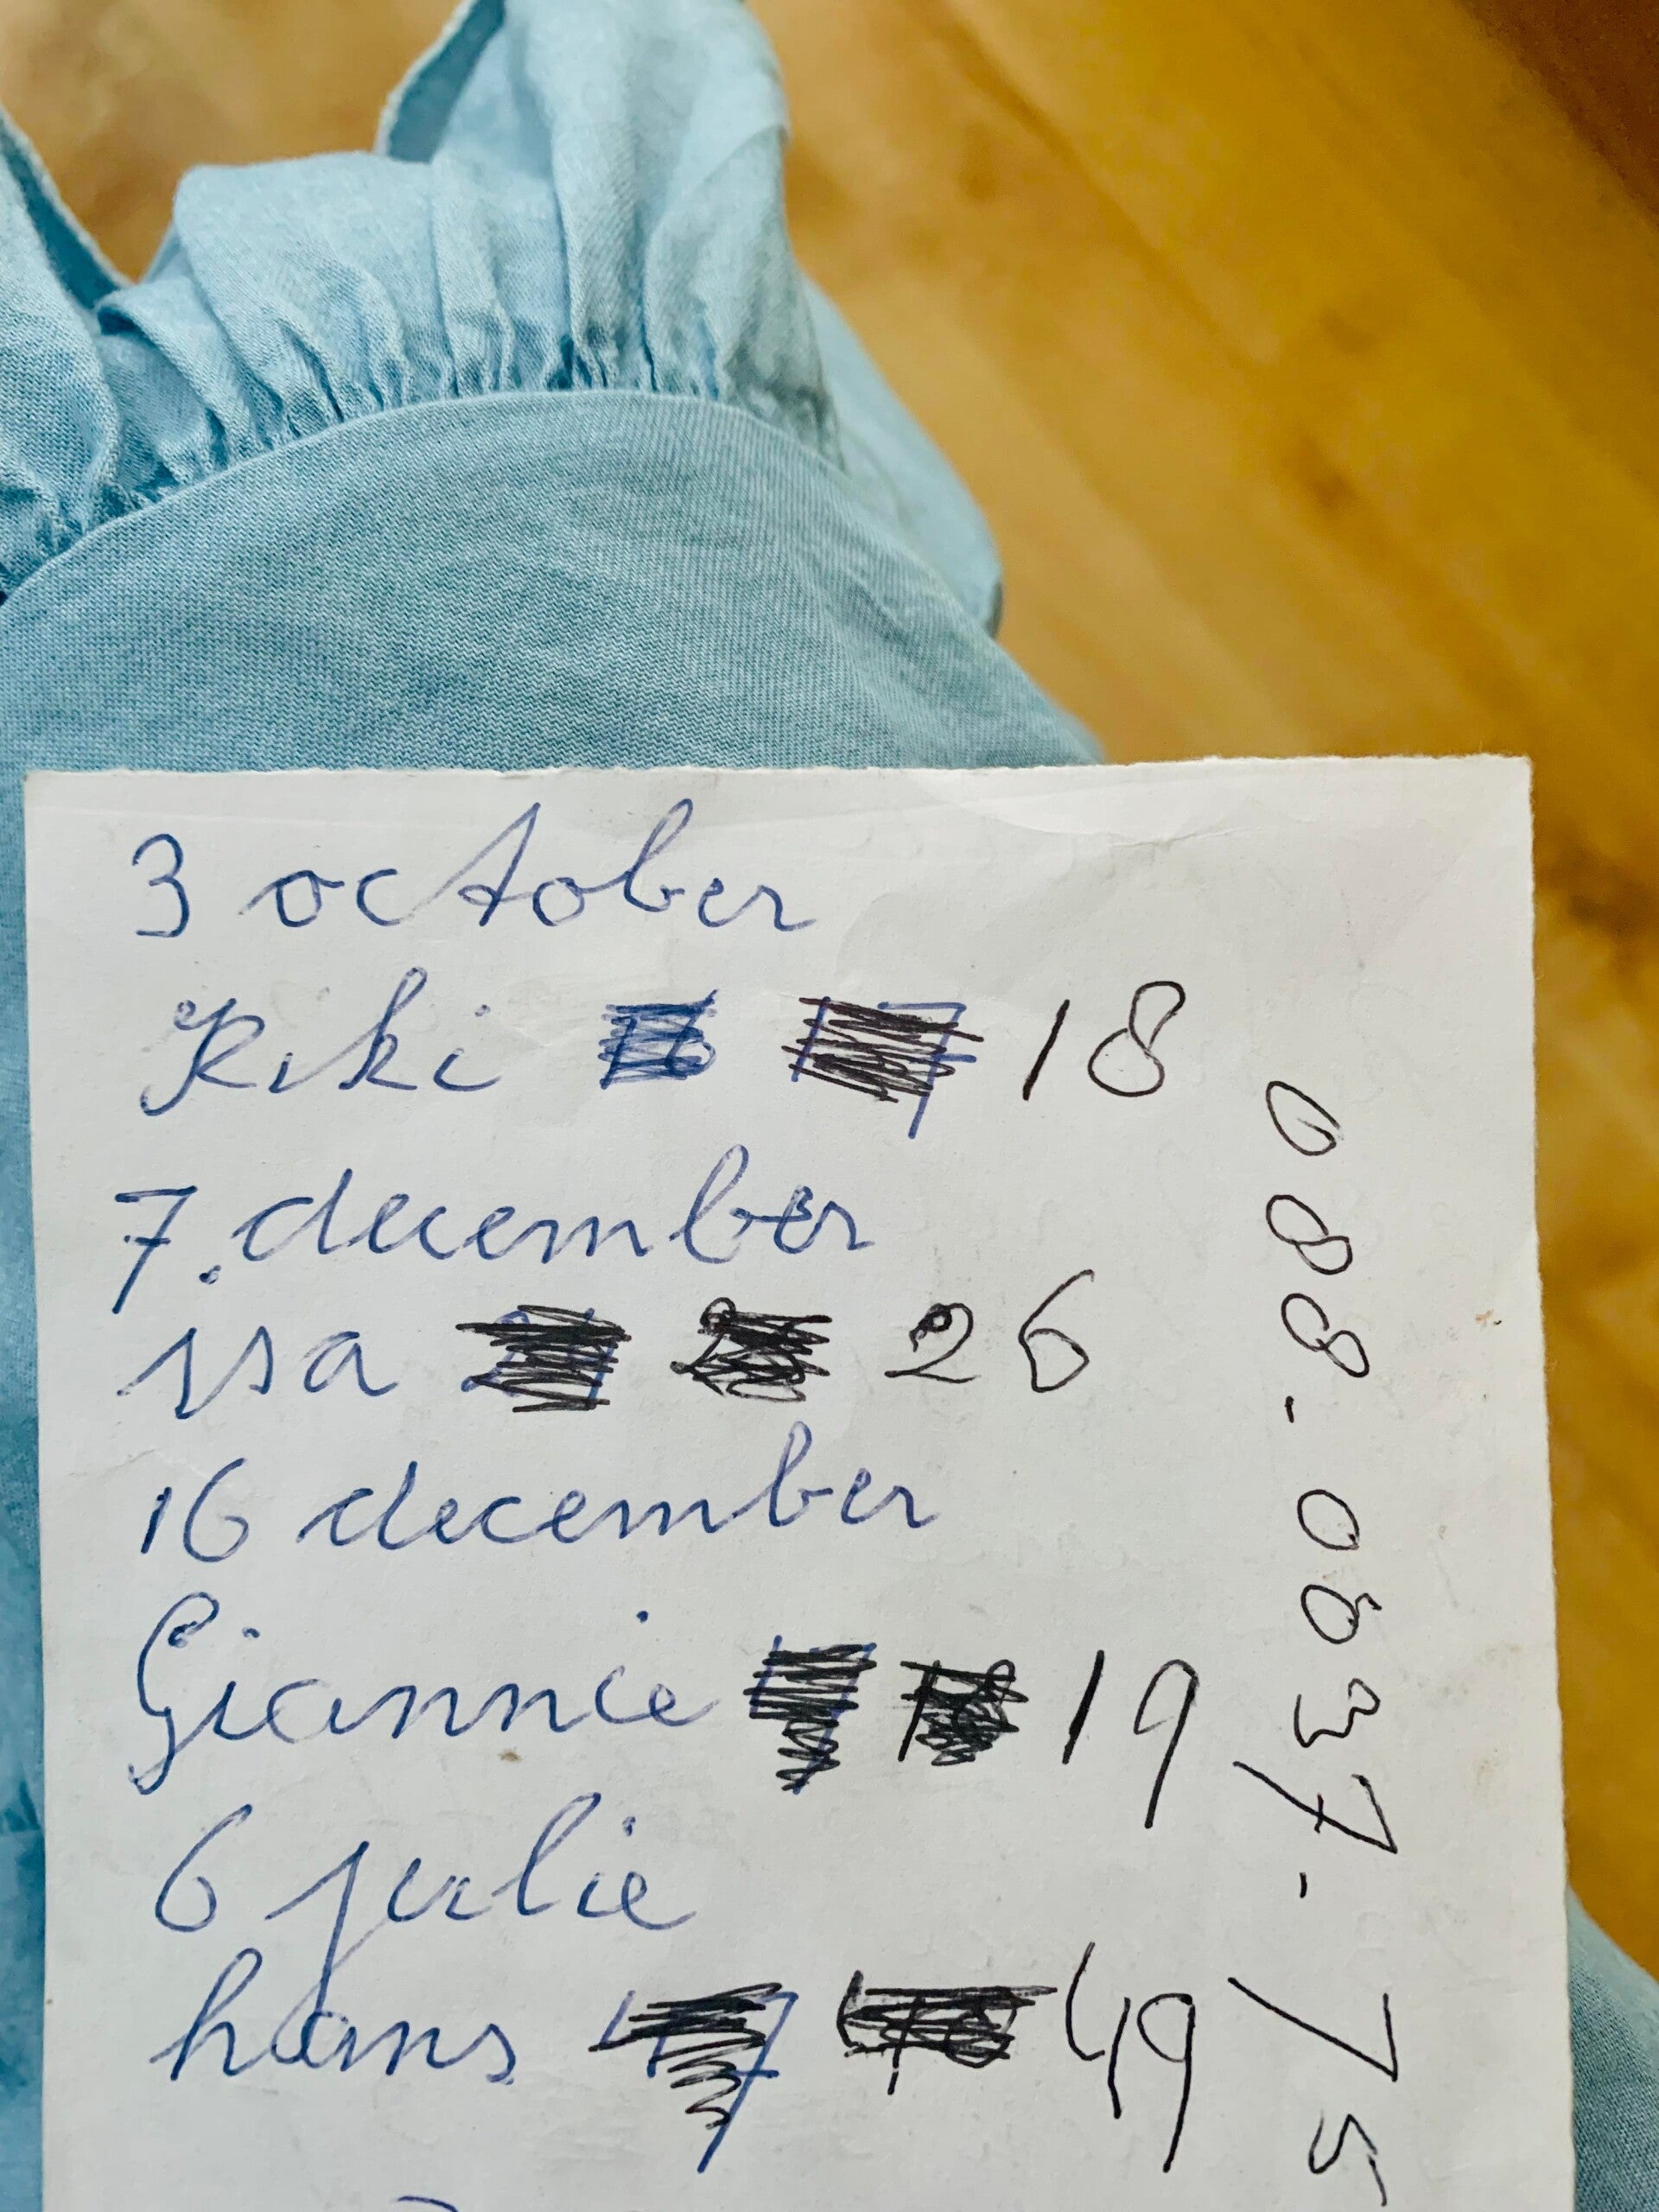 3 october
Kiki 18
7. december
isa 26
16 december
Giannie 19
6 julie
hans 49
088-0637-75